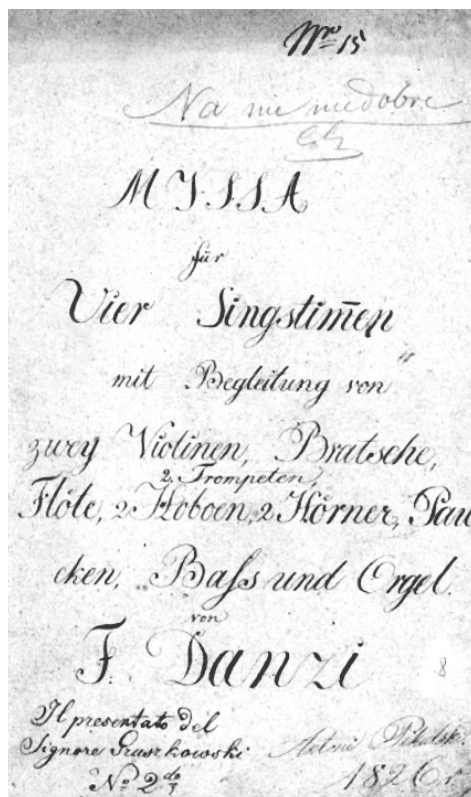 Nro 15
Na nic niedobre
MISSA
für
Vier Singstim̅en
mit Begleitung von
zwey Violinen, Bratsche,
2 Trompeten,
Flöte, 2 Hoboen, 2 Hörner, Pau
cken, Bass und Orgel.
von
F. Danzi
8
Il presentato del
Signore Gruszkowski
No 2do
1826 r